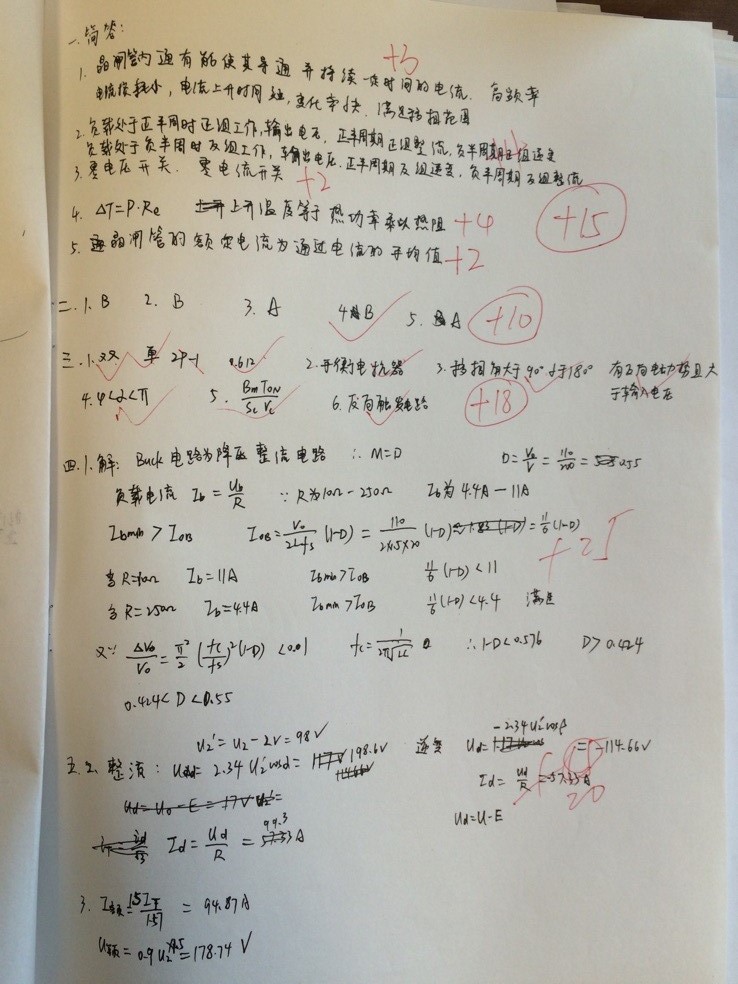 一.简答:
1. 晶闸管内通有能使其导通并持续一段时间的电流. 高频率 +3
电流损耗小, 电流上升时间短, 变化率快. 满足移相范围
2. 负载处于正半周时正组工作, 输出电压, 正半周期正组整流, 负半周期正组逆变
负载处于负半周时反组工作, 输出电压, 正半周期反组逆变, 负半周期反组整流
3. 零电压开关. 零电流开关 +2
4. ΔT=P·Re 上升温度等于热功率乘以热阻 +4
+15
5. 晶闸管的额定电流为通过电流的平均值 +2
二. 1. B 2. B 3. A 4. B 5. A +10
三. 1. 双 单 2P-1 0.612 2. 平衡电抗器 3. 移相角大于90°小于180° 有反向电动势且大
于输入电压
4. φ<α<π 5. BmTON/ScVc 6. 反向触发电路 +18
四. 1. 解: Buck电路为降压整流电路 ∴ M=D D=Vo/V=110/200=0.55
负载电流 Ib=Ub/R ∵ R为10Ω-25Ω Ib为4.4A-11A
Ibmin>IOB IOB=Vo/2Lfs(1-D)=110/2×1.5×20(1-D)=11/6(1-D) +25
当R=10Ω Ib=11A Ibmin>IOB 11/6(1-D)<11
当R=25Ω Ib=4.4A Ibmin>IOB 11/6(1-D)<4.4 满足
又∵ ΔVo/Vo=π²/2(fc/fs)²(1-D)<0.01 fc=1/2π√LC ∴1-D<0.576 D>0.424
0.424<D<0.55
U2'=U2-2V=98V
五. 2. 整流: Ud=2.34U2'cosα=198.6V 逆变 Ud=-2.34U2'cosβ=-114.66V
Id=Ud/R=-57.33A
20
Ud=U-E
Id=Ud/R=99.3A
3. I额=1.5IT/1.57=94.87A
U额=0.9U2=178.74V